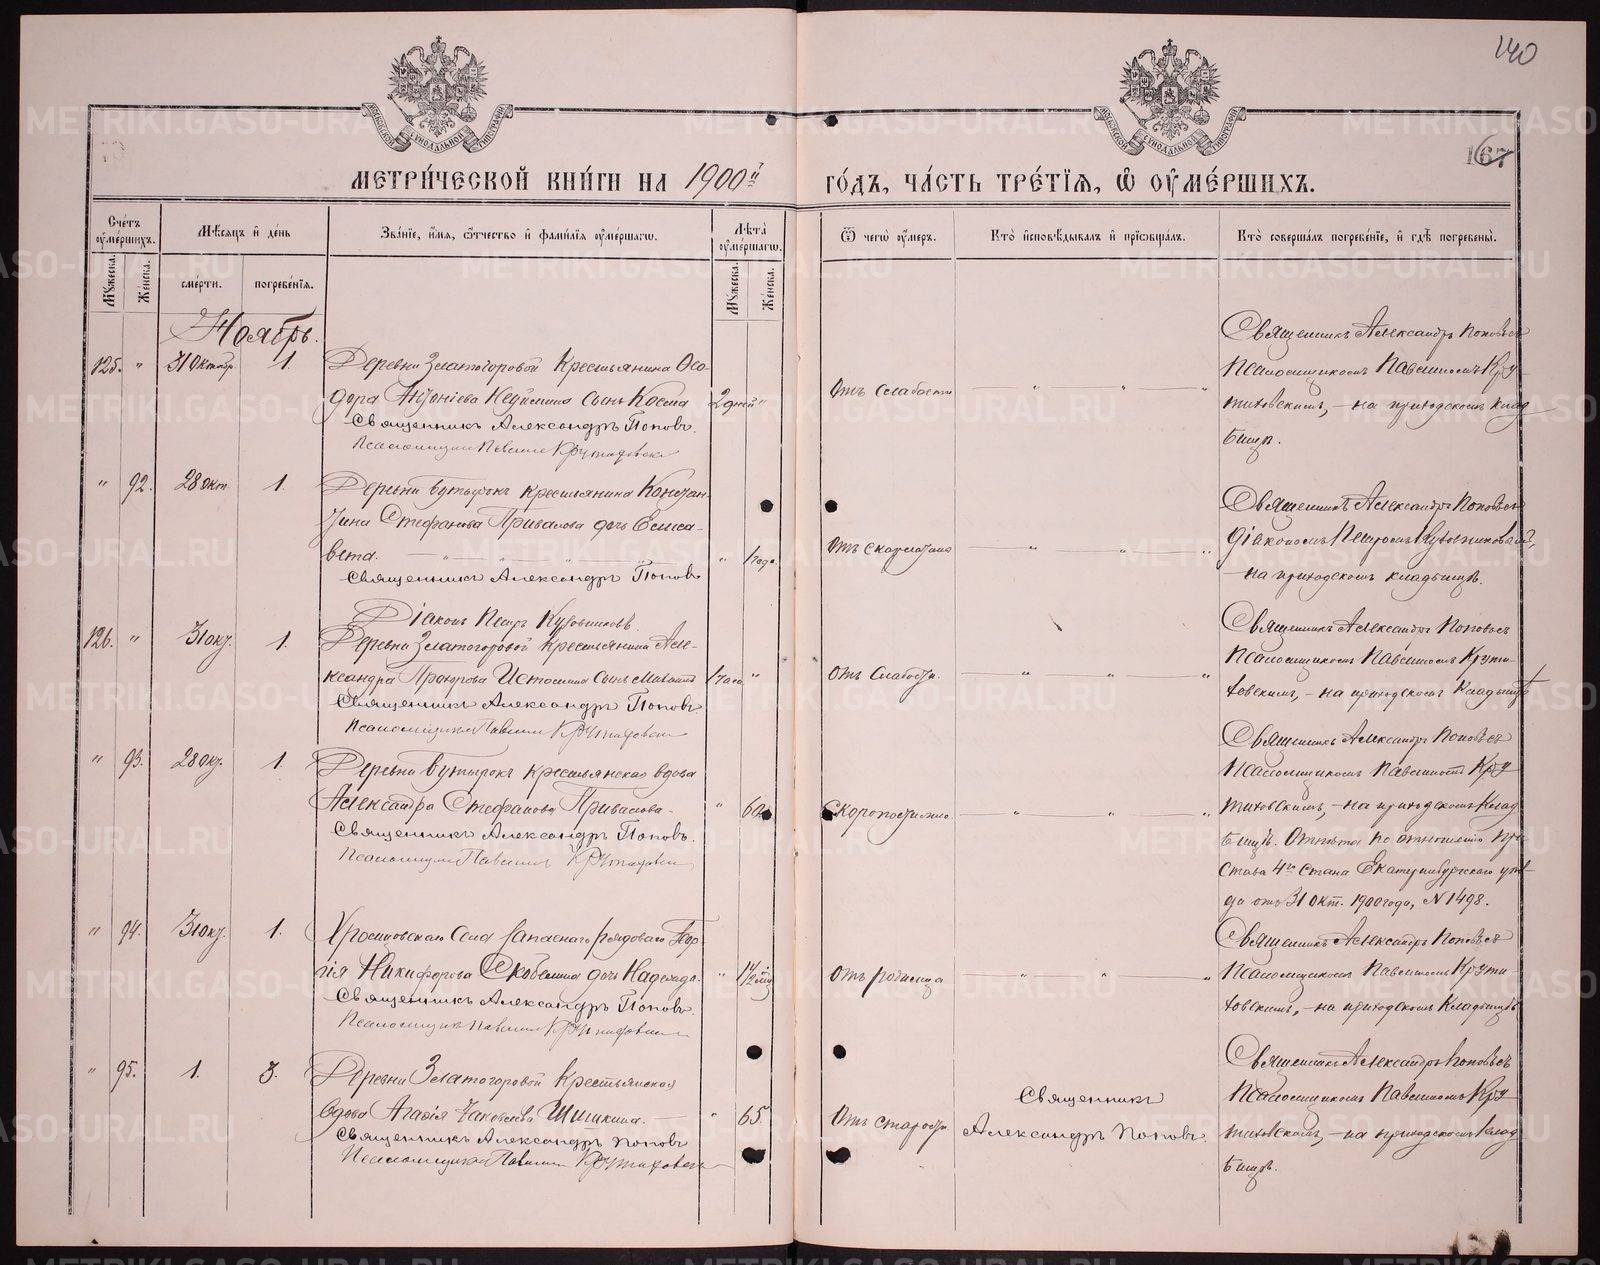 140
167
МЕТРИ́ЧЕСКОЙ КНИ́ГИ НА 1900й
ГО́ДЪ, ЧА́СТЬ ТРЕ́ТІѦ, Ѡ҆ ОУ҆МЕ́РШИХЪ.
Сче́тъ оу҆ме́ршихъ.
Мꙋ́жеска.
Же́нска.
Мѣ́сяцъ и҆ де́нь
сме́рти.
погребе́нїя.
Зва́нїе, и҆́мя, ѻ҆́тчество и҆ фами́лїя оу҆ме́ршагѡ.
Лѣ́та оу҆ме́ршагѡ.
Мꙋ́жеска.
Же́нска.
Ѿ чегѡ̀ оу҆́меръ.
Кто̀ и҆сповѣ́дывалъ и҆ прїѡбща́лъ.
Кто̀ соверша́лъ погребе́нїе, и҆ гдѣ̀ погребены̀.
Ноябрь.
125. " 31 Октябр. 1.
Деревни Златогоровой крестьянина Ѳео-
дора сынъ Косма
2 дней "
Священникъ Александръ Поповъ.
Псаломщикъ Крутиховскі
Отъ слабости
Священникъ Александръ Поповъ съ
Псаломщикомъ Кру
тиховскимъ, на приходскомъ клад
бищѣ.
" 92. 28 окт 1.
Деревни крестьянина Констан-
тина Стефанова Привалова дочь Елиса-
вета.
" 1 года
Священникъ Александръ Поповъ
Діаконъ Петръ
Отъ скарлатины
Священникъ Александръ Поповъ съ
діакономъ Петромъ
на приходскомъ кладбищѣ.
126. " 31 окт. 1.
Деревни Златогоровой крестьянина Але-
ксандра Истомина сынъ
1 часа "
Священникъ Александръ Поповъ
Псаломщикъ
отъ слабости.
Священникъ Александръ Поповъ съ
Псаломщикомъ Крути-
ховскимъ, на приходскомъ кладбищѣ
" 93. 28 окт. 1.
Деревни Бутырокъ крестьянская вдова
Александра Стефанова Привалова
" 60
Священникъ Александръ Поповъ.
Псаломщикъ
Скоропостижно.
Священникъ Александръ Поповъ съ
Псаломщикомъ Кру
тиховскимъ, на приходскомъ клад
бищѣ. Отпѣта по отношенію при-
става 4го стана Екатеринбургскаго уѣз-
да отъ 31 окт. 1900 года, № 1498.
" 94. 31 окт. 1.
села запаснаго рядоваго Геор
гія Никифорова Скобелина дочь Надежда.
" 1 1/2 мѣ
Священникъ Александръ Поповъ
Псаломщикъ
отъ родимца
Священникъ Александръ Поповъ съ
Псаломщикомъ Крути-
ховскимъ, на приходскомъ кладбищѣ
" 95. 1. 3.
Деревни Златогоровой крестьянская
вдова Агафія Яковлева Шишкина.
" 65.
Священникъ Александръ Поповъ
Псаломщикъ
Отъ старости.
Священникъ
Александръ Поповъ.
Священникъ Александръ Поповъ съ
Псаломщикомъ Кру
тиховскимъ, на приходскомъ клад
бищѣ.
METRIKI.GASO-URAL.RU